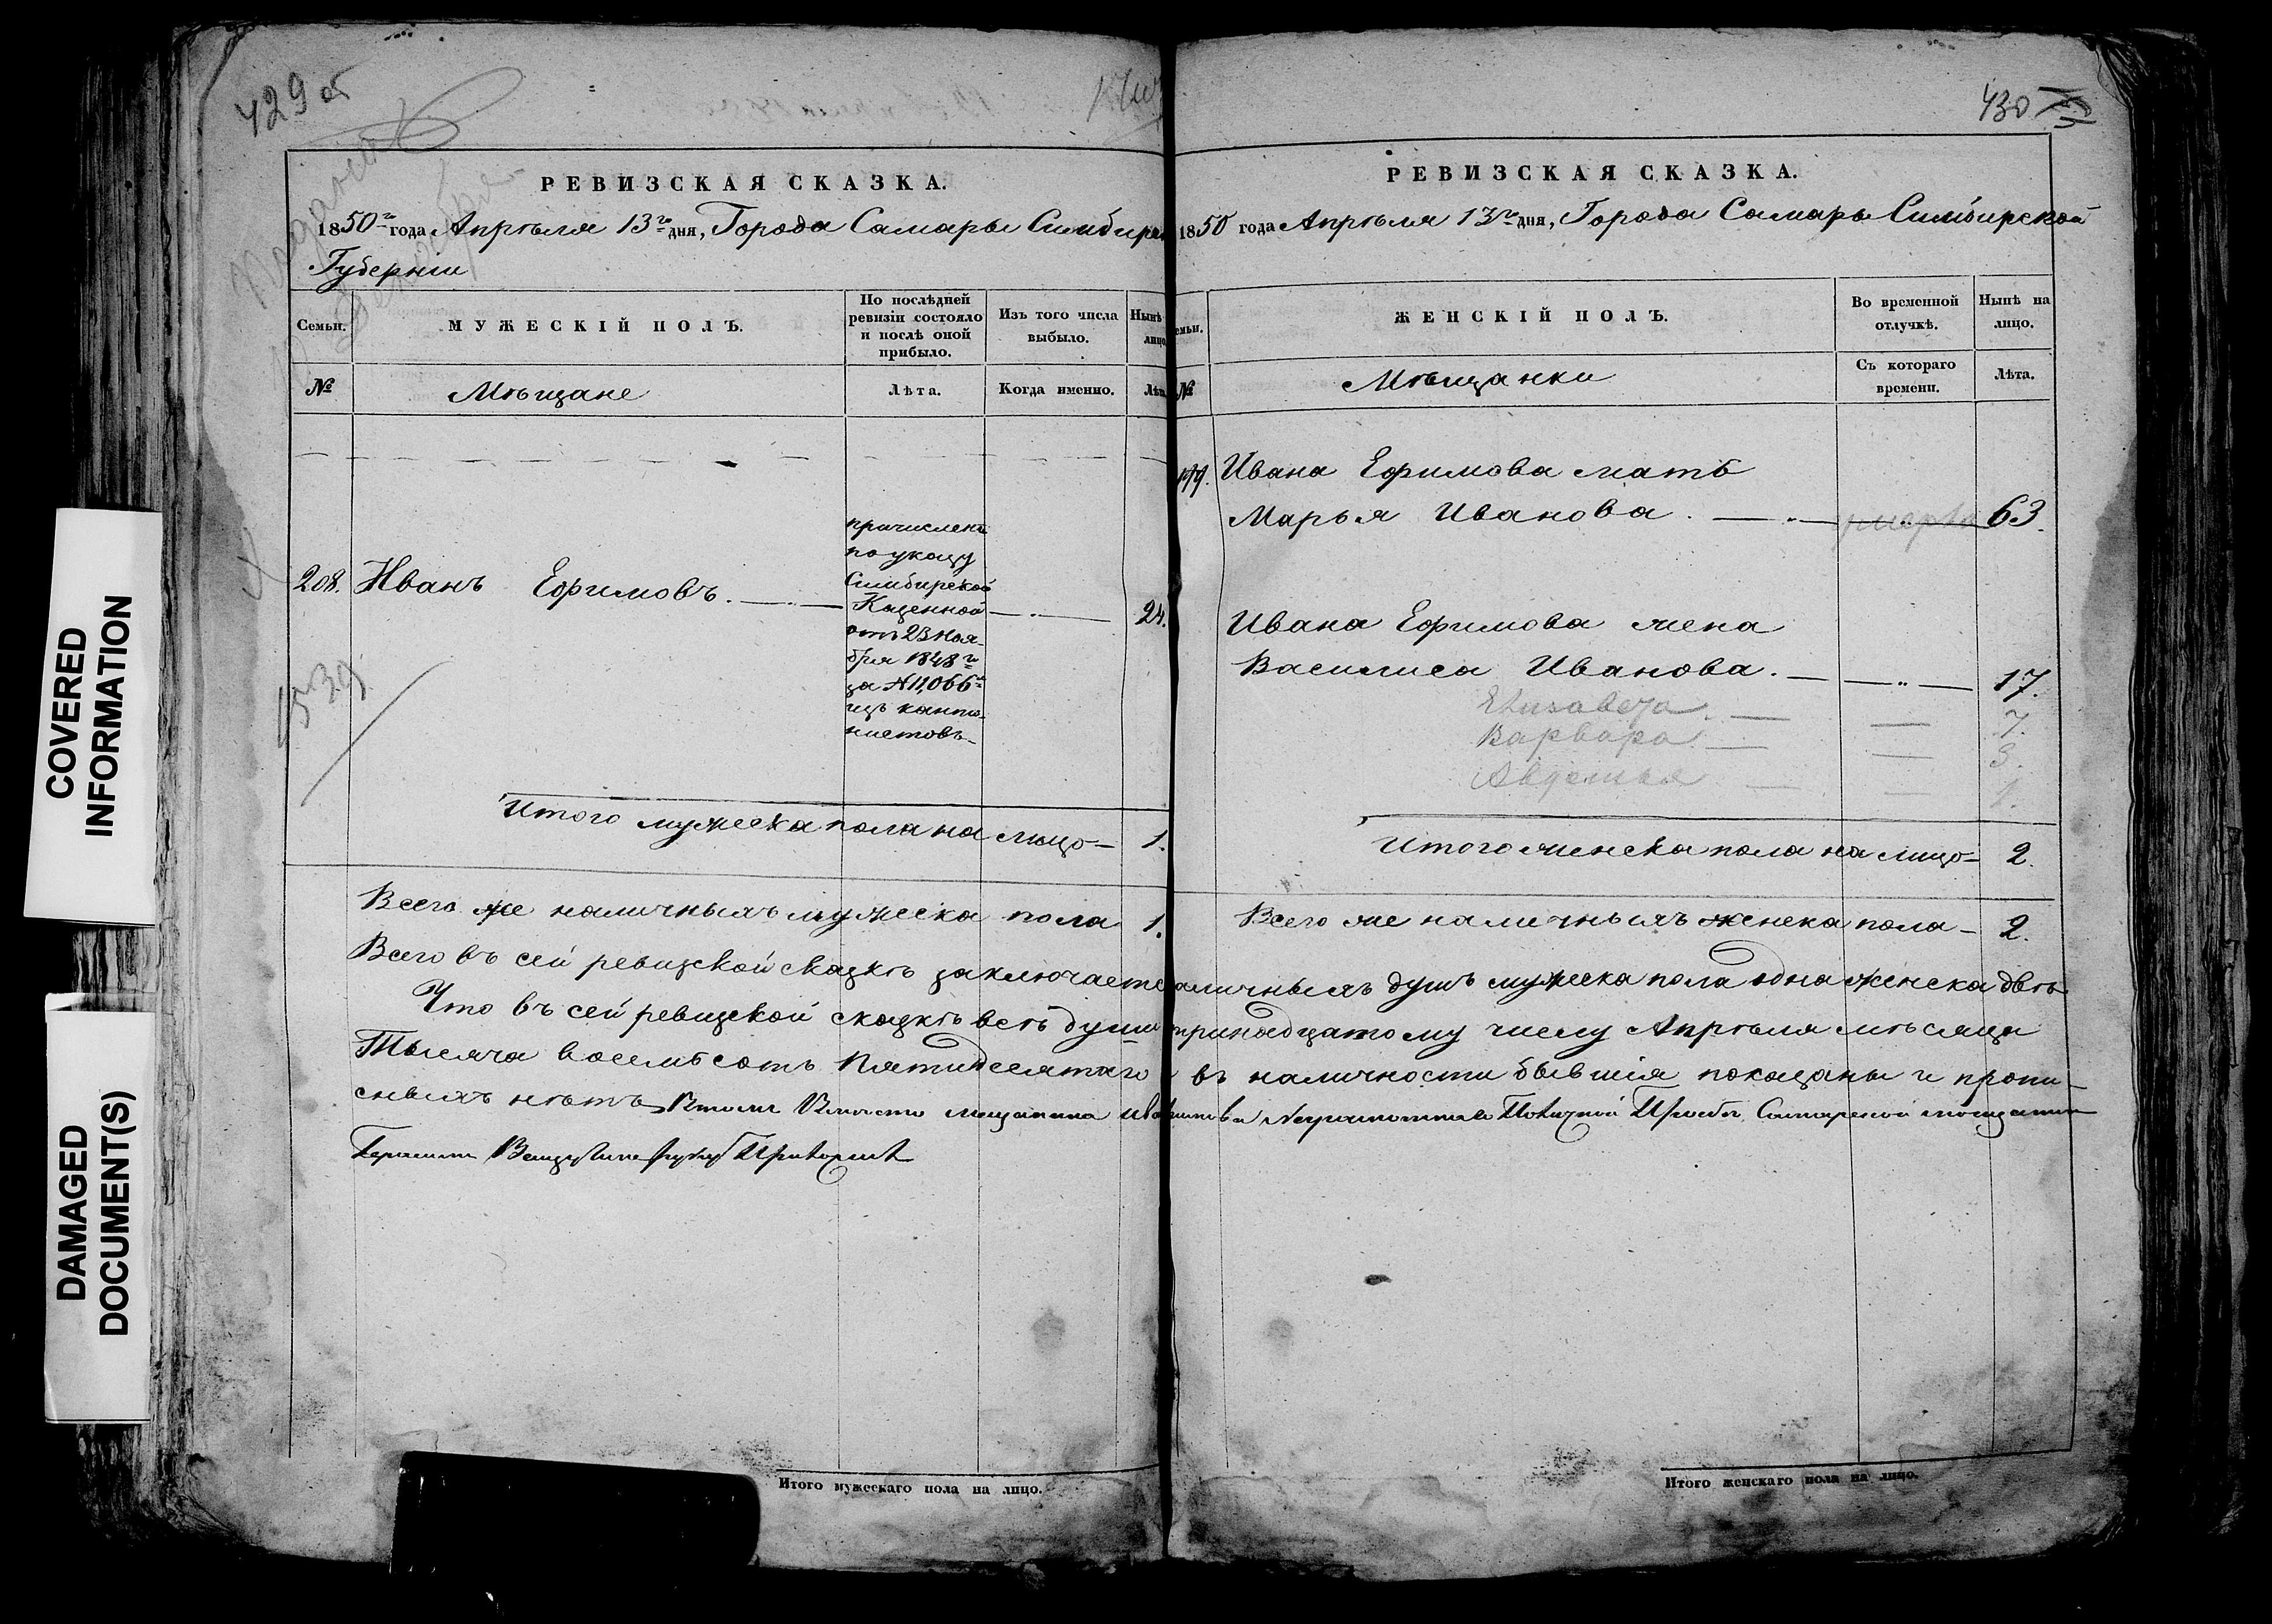 429 об
РЕВИЗСКАЯ СКАЗКА.
1850го года Апрѣля 13го дня, Города Самары Симбирс
Губерніи
Семьи.
МУЖЕСКІЙ ПОЛЪ.
По послѣдней ревизіи состояло и послѣ оной прибыло.
Изъ того числа выбыло.
Нынѣ лицо
№
Мѣщане
Лѣта.
Когда именно.
Лѣта
причисленъ
по указу
Симбирской
Казенной
отъ 23 Ноя-
бря 1848го
за № 11,066м
изъ канто-
нистовъ
208. Иванъ Ефимовъ. 24.
1539
Итого мужеска пола на лицо 1.
Всего же наличныхъ мужеска пола 1.
Всего въ сей ревизской сказкѣ заключаетс
Что въ сей ревизской сказкѣ всѣ души
Тысяча восемьсотъ Пятидесятаго
сныхъ нѣтъ
430
РЕВИЗСКАЯ СКАЗКА.
1850 года Апрѣля 13го дня, Города Самары Симбирской
емьи.
ЖЕНСКІЙ ПОЛЪ.
Во временной отлучкѣ.
Нынѣ на лицо.
№
Мѣщанки
Съ котораго времени.
Лѣта.
Ивана Ефимова мать
Марья Иванова. умерла 63.
Ивана Ефимова жена
Василиса Иванова. 17.
Елизавета 7.
Варвара 3.
Авдотья 1.
Итого женска пола на лицо 2.
Всего же наличныхъ женска пола 2.
аличныхъ душъ мужеска пола одна женска двѣ
тринадцатому числу Апрѣля мѣсяца
въ наличности бывшія показаны и пропи-
Итого мужескаго пола на лицо.
Итого женскаго пола на лицо.
COVERED
INFORMATION
DAMAGED
DOCUMENT(S)